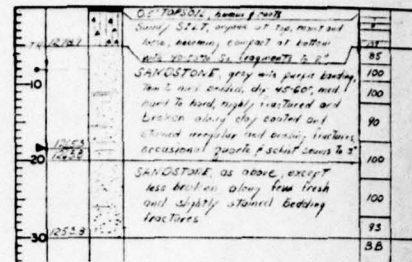 0.5' TOPSOIL, humus & roots
Sandy SILT, organic at top, moist and
loose, becoming compact at bottom
with
fragments to
SANDSTONE, gray with purple banding,
thin to med bedded, dip 45-60°, med
hard to hard, highly fractured and
broken along clay coated and
stained irregular and bedding fractures,
occasional quartz & schist seams to 3"
SANDSTONE, as above, except
less broken along few fresh
and slightly stained bedding
fractures
10
20
30
1253.8
85
100
100
90
100
100
93
38